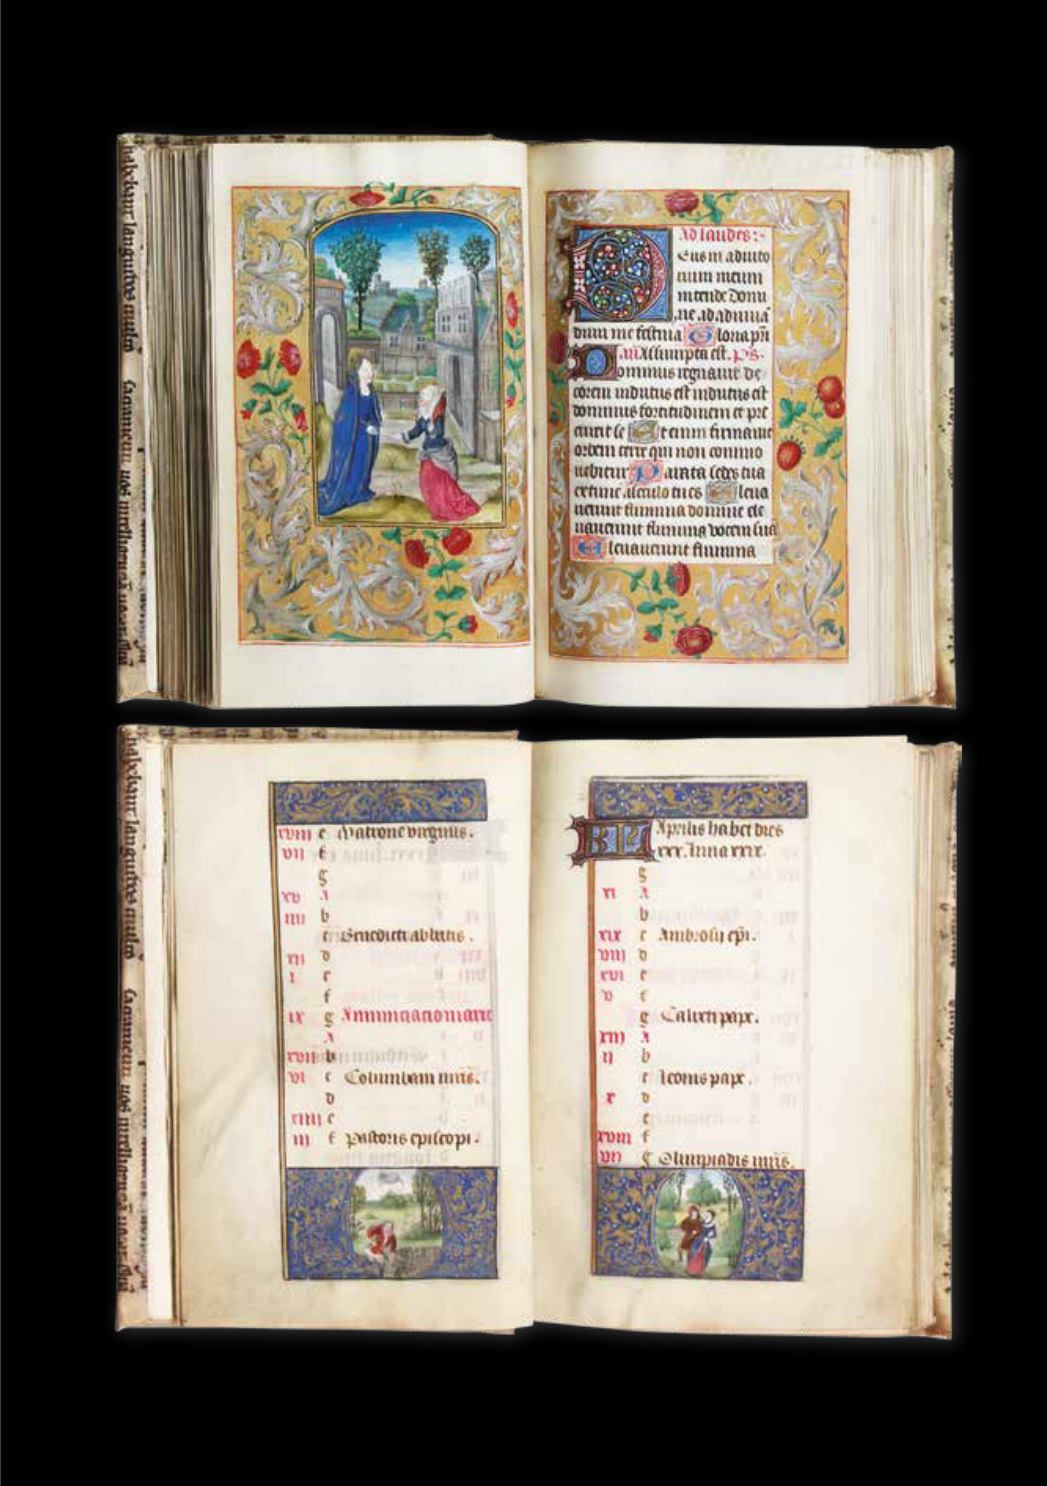 Ad laudes:-
Deus in adiuto
rium meum
intende Domi
ne ad adiuuā
dum me festina Gloria p̄ri
An Assumpta est. Ps.
Dominus regnauit de
corem indutus est indutus est
dominus fortitudinem et pre
cinxit se Etenim firmauit
orbem terre qui non commo
uebitur Parata sedes tua
ex tunc a seculo tu es Eleua
uerunt flumina domine ele
uauerunt flumina vocem suā
Eleuauerunt flumina
xviii e Matrone virginis.
vii f
g
xv A
iiii b
c Benedicti abbatis.
xii d
i e
f
ix g Annunciacio marie
A
xvii b
vi c
d
xiiii e
iii f Pastoris episcopi.
KL Aprilis habet dies
xxx. luna xxix.
g
xi A
b
xix c Ambrosij ep̄i.
viii d
xvi e
v f
g Calixti pape.
xiii A
ii b
c leonis pape.
x d
e
xviii f
vii g Olimpiadis mr̄is.